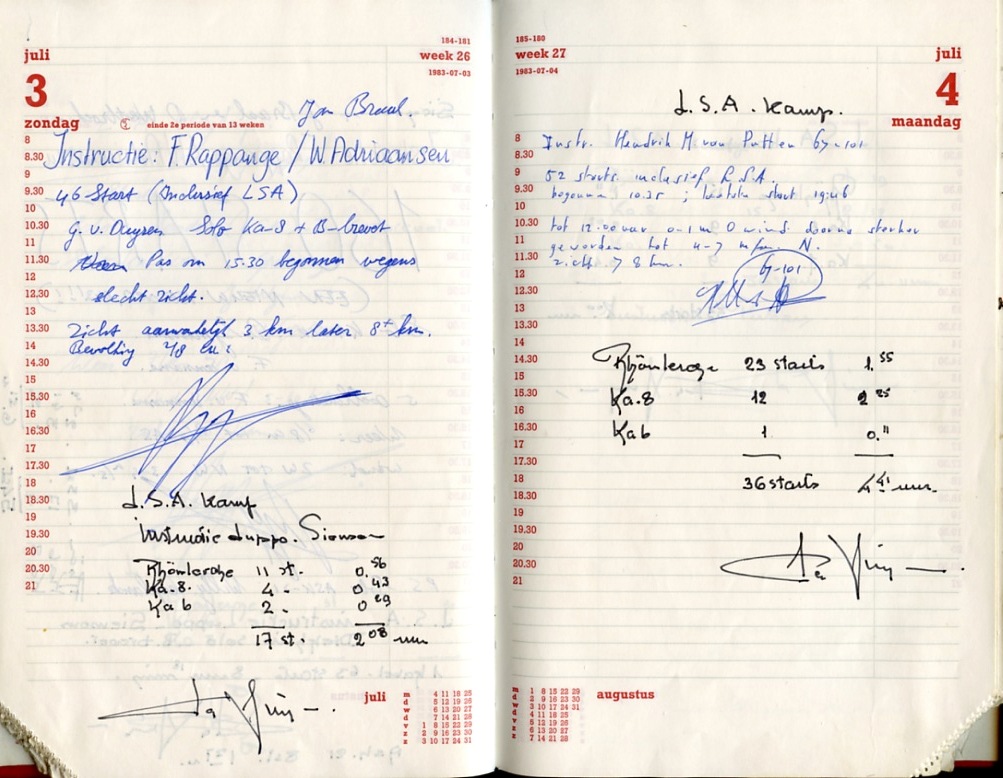 184-181
juli
week 26
1983-07-03
3
zondag
einde 2e periode van 13 weken
Jan Braad.
8
Instructie: F. Rappange / W Adriaansen
8.30
9
9.30
46 Start (Inclusief LSA)
10
10.30
G. v. Duyren Solo Ka-8 + B-brevet
11
11.30
Pas om 15.30 begonnen wegens
12
12.30
slecht zicht.
13
13.30
Zicht aanvankelijk 3 km later 8+ km.
14
14.30
15
15.30
16
16.30
17
17.30
18
18.30
L.S.A. Kamp
19
Instructie Luppo. Siemson
19.30
20
20.30
Rhönlerche 11 st. 0.56
Ka.8. 4 - 0 43
21
Ka 6 2 - 0 29
17 st. 2 08 uur
juli
m 4 11 18 25
d 5 12 19 26
w 6 13 20 27
d 7 14 21 28
v 1 8 15 22 29
z 2 9 16 23 30
z 3 10 17 24 31
185-180
week 27
1983-07-04
juli
4
maandag
L.S.A. Kamp.
8
Instr. Hendrik M van Putten Gy-101
8.30
9
52 starts inclusief LSA.
9.30
begonnen 10.35 ; laatste start 19.46
10
10.30
tot 12.00 uur 0-1 m 0 wind daarna sterker
11
geworden tot 4-7 m/sec N.
11.30
zicht > 8 km.
Gy-101
12
12.30
13
13.30
14
14.30
Rhönlerche 23 starts 1.55
15
15.30
Ka.8 12 2 25
16
16.30
Ka6 1 0."
17
17.30
18
36 starts 4 41 uur.
18.30
19
19.30
20
20.30
21
m 1 8 15 22 29
d 2 9 16 23 30
w 3 10 17 24 31
d 4 11 18 25
v 5 12 19 26
z 6 13 20 27
z 7 14 21 28
augustus